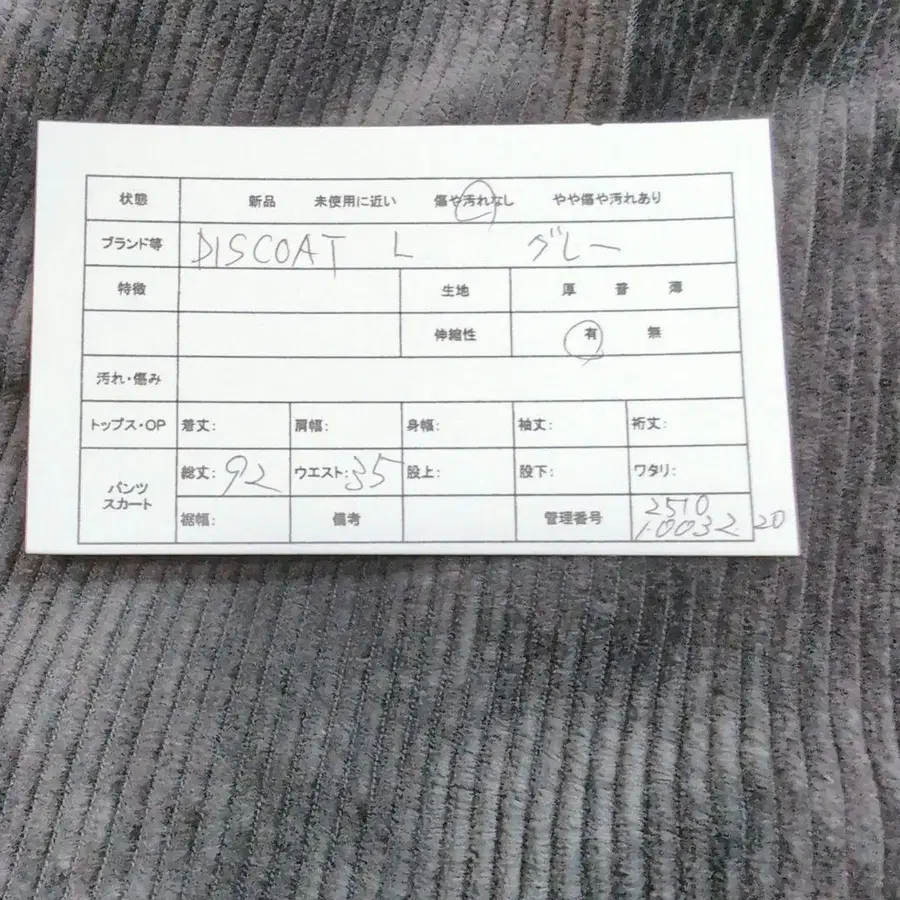 状態 新品 未使用に近い 傷や汚れなし やや傷や汚れあり
ブランド等 DISCOAT L グレー
特徴 生地 厚 普 薄
伸縮性 有 無
汚れ・傷み
トップス・OP 着丈: 肩幅: 身幅: 袖丈: 裄丈:
パンツ スカート 総丈: 92 ウエスト: 35 股上: 股下: ワタリ:
裾幅: 備考 管理番号 2510
10032 20